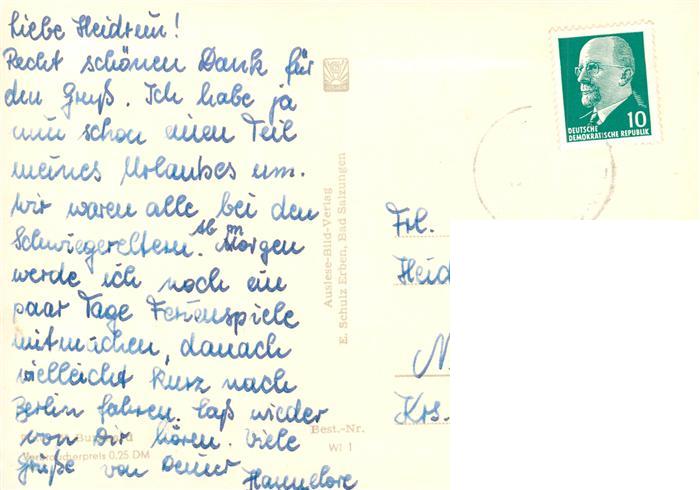 Liebe Heidrun!
Recht schönen Dank für
den Gruß. Ich habe ja
nun schon einen Teil
meines Urlaubes um.
Wir waren alle bei den
Schwiegereltern. Ab morgen
werde ich noch ein
paar Tage Ferienspiele
mitmachen, danach
vielleicht kurz nach
Berlin fahren. Laß wieder
von Dir hören. Viele
Grüße von Deiner
Hannelore
Verbraucherpreis 0,25 DM
Auslese-Bild-Verlag
E. Schulz Erben, Bad Salzungen
Best.-Nr.
WI 1
10
DEUTSCHE
DEMOKRATISCHE REPUBLIK
Frl.
Heid
N
Krs.